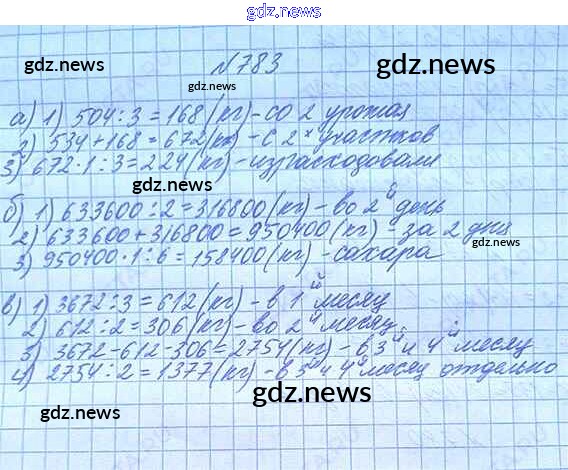 gdz.news
№783
gdz.news
gdz.news
gdz.news
а) 1) 504:3=168(кг)-со 2 урожая
2) 534+168=672(кг)-с 2х участков
3) 672·1:3=224(кг)-израсходовали
gdz.news
б) 1) 633600:2=316800(кг)-во 2й день
2) 633600+316800=950400(кг)-за 2 дня
gdz.news
3) 950400·1:6=158400(кг)-сахара
gdz.news
в) 1) 3672:3=612(кг)-в 1й месяц
2) 612:2=306(кг)-во 2й месяц.
3) 3672-612-306=2754(кг)-в 3й и 4й месяц
4) 2754:2=1377(кг)-в 3й и 4й месяц отдельно
gdz.news
gdz.news
gdz.news